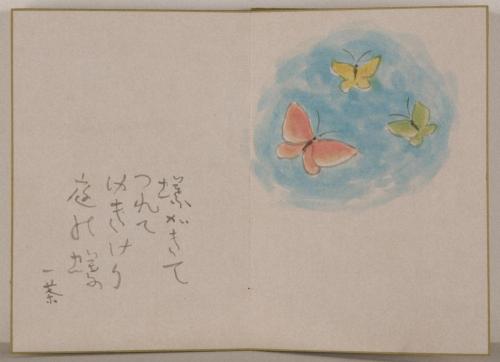 蝶が来て
つれて
ゆきけり
庭の蝶
一茶